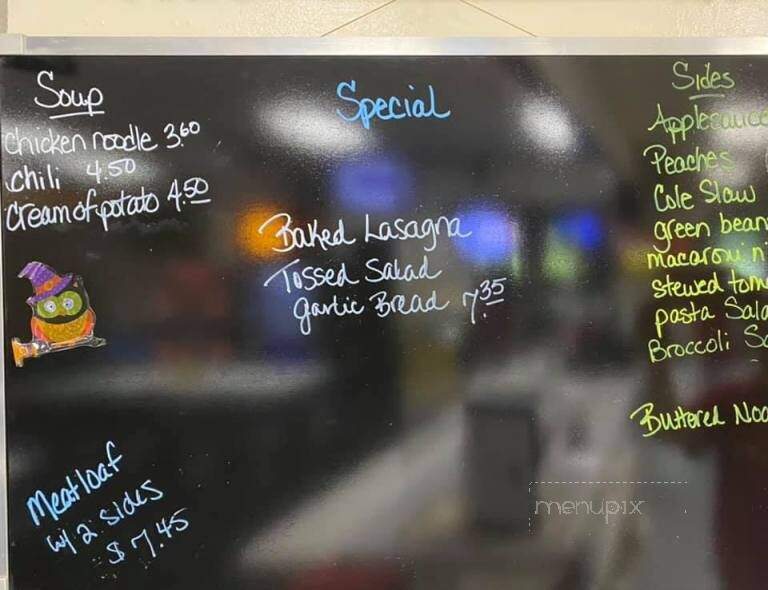 Soup
Chicken noodle 3.60
chili 4.50
Cream of potato 4.50
Special
Baked Lasagna
Tossed Salad
garlic Bread 7.35
Meatloaf
w/ 2 sides
$7.45
Sides
Applesauce
Peaches
Cole Slaw
green bean
macaroni n'
stewed tom
pasta Sala
Broccoli Sa
Buttered Noo
menupix